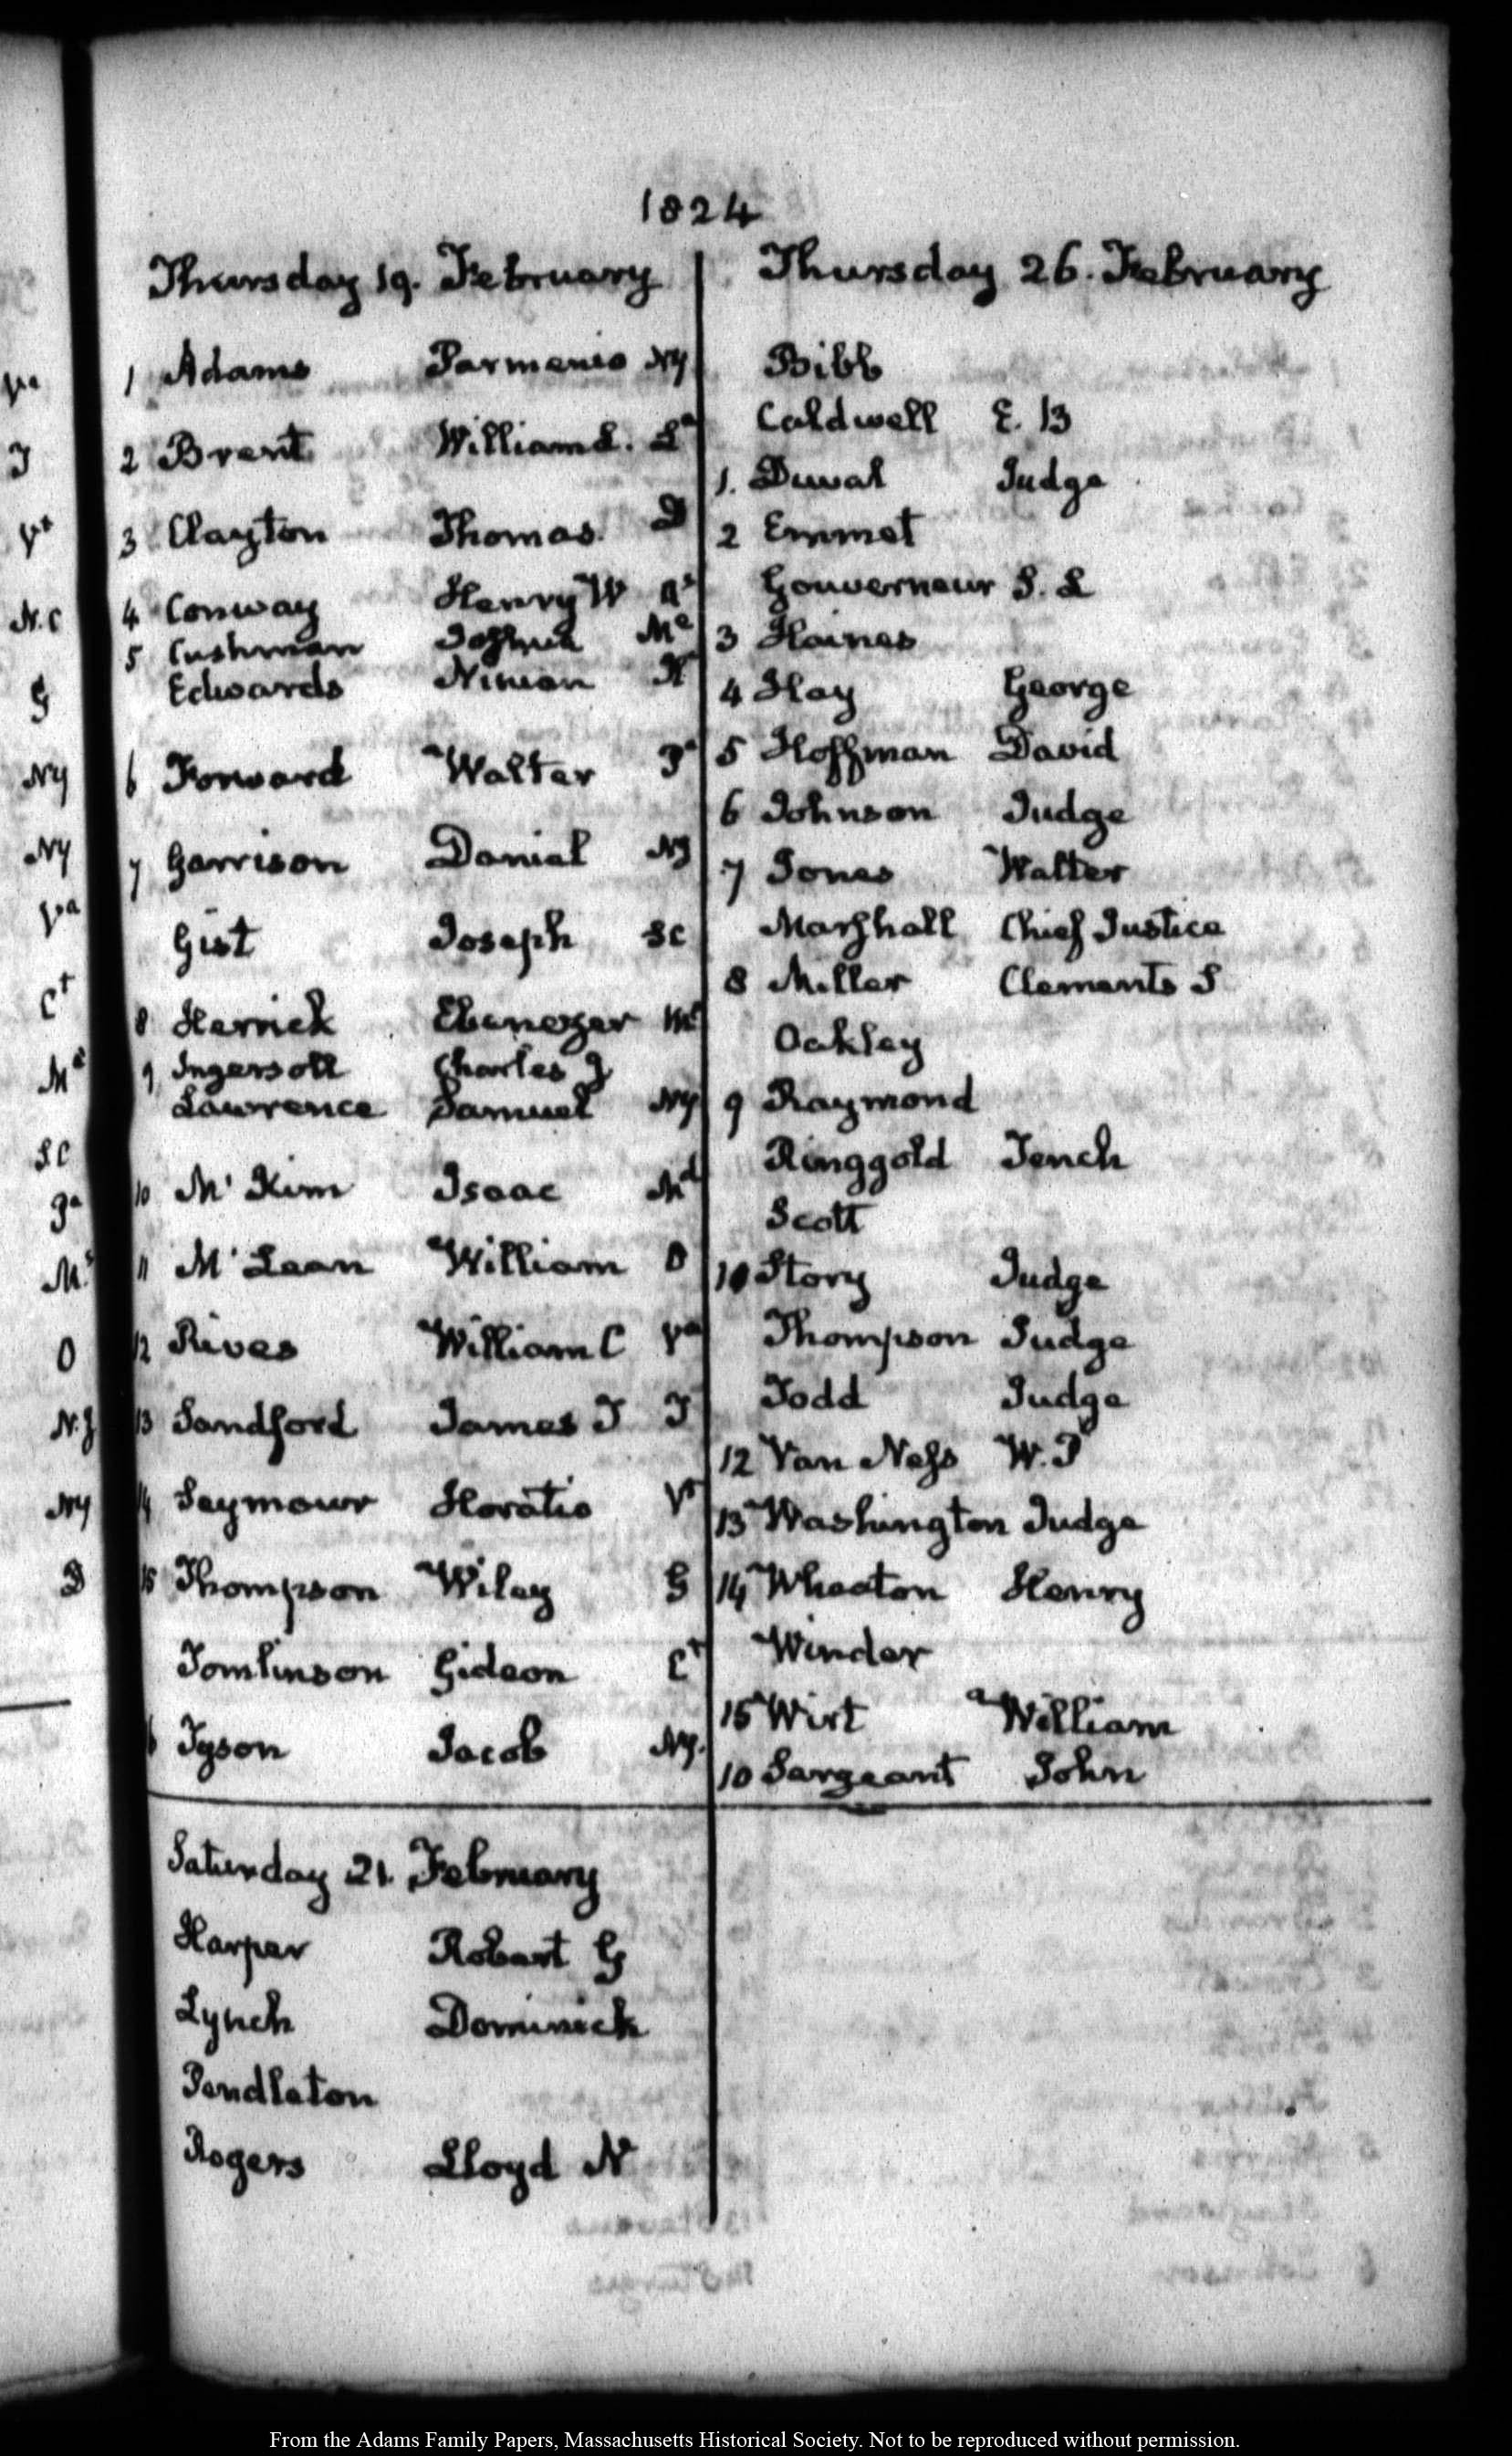 1824
Thursday 19. February
1 Adams Parmenio NY
2 Brent William L. La
3 Clayton Thomas. D
4 Conway Henry W As
5 Cushman Joshua Me
Edwards Ninian
6 Forward Walter Pa
7 Garrison Daniel NJ
Gist Joseph SC
8 Herrick Ebenezer Me
9 Ingersoll Charles J
Lawrence Samuel NY
10 Mc Kim Isaac Md
11 Mc Lean William O
12 Rives William C Va
13 Sandford James T T
14 Seymour Horatio Vt
15 Thompson Wiley G
Tomlinson Gideon Ct
Tyson Jacob NY.
Saturday 21. February
Harper Robert G
Lynch Dominick
Pendleton
Rogers Lloyd N
Thursday 26. February
Bibb
Caldwell E. B
1. Duval Judge
2 Emmet
Gouverneur S. L
3 Haines
4 Hay George
5 Hoffman David
6 Johnson Judge
7 Jones Walter
Marshall Chief Justice
8 Miller Clements S
Oakley
9 Raymond
Ringgold Tench
Scott
10 Story Judge
Thompson Judge
Todd Judge
12 Van Ness W. P
13 Washington Judge
14 Wheaton Henry
Winder
15 Wirt William
10 Sargeant John
Va
T
Vt
N.C
G
NY
NY
Va
Ct
SC
Pa
O
N.J
NY
D
From the Adams Family Papers, Massachusetts Historical Society. Not to be reproduced without permission.